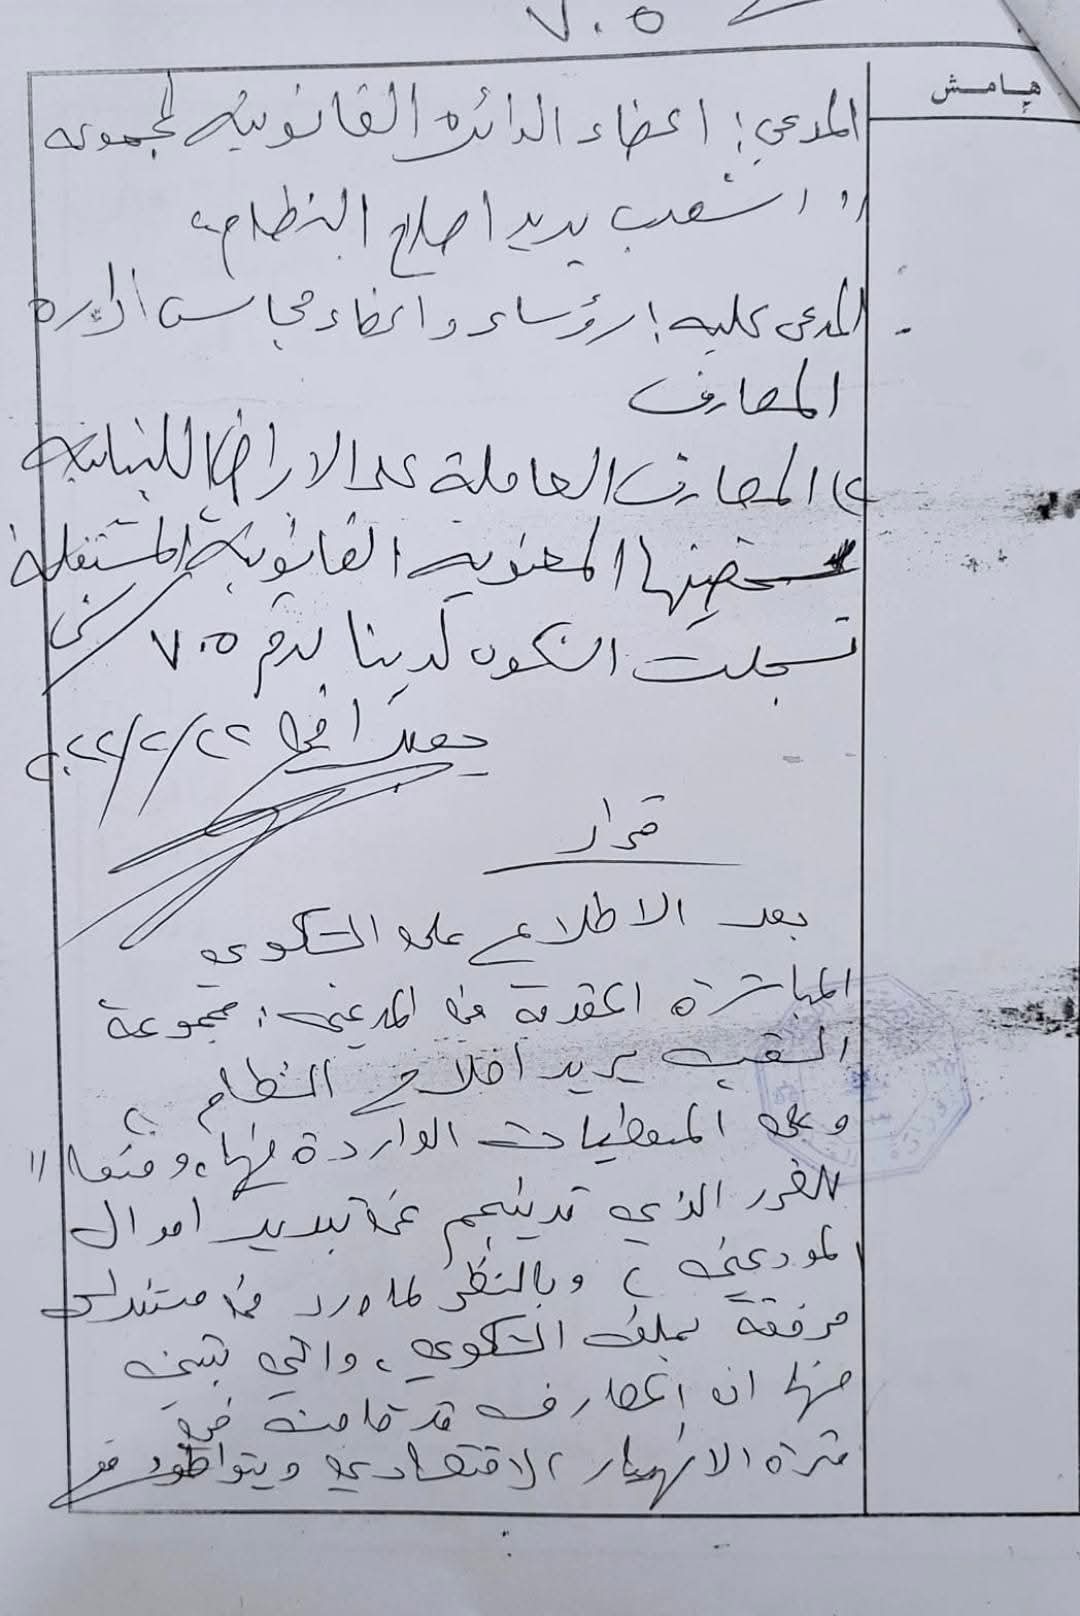 ٧٠٥
هامش
المدعي: اعضاء الدائره القانونيه لمجموعه
"الشعب يريد اصلاح النظام"
المدعى عليه: رؤساء واعضاء مجالس اداره
المصارف
٢) المصارف العاملة على الاراضي اللبنانيه
بشخصيتها المعنويه القانونية المستقلة
تسجلت الشكوى لدينا برقم ٧٠٥
بعبدا في ٢٠٢٢/٢/٢٢
قرار
بعد الاطلاع على الشكوى
المباشرة المقدمة من المدعين: مجموعة
الشعب يريد اصلاح النظام،
وعلى المعطيات الواردة فيها، ومنعا "
للضرر الذي قد ينجم عن تبديد اموال
المودعين، وبالنظر لما ورد من مستندات
مرفقة بملف الشكوى، والتي تبين
منها ان المصارف قد قامت في
فترة الانهيار الاقتصادي وبتواطؤ